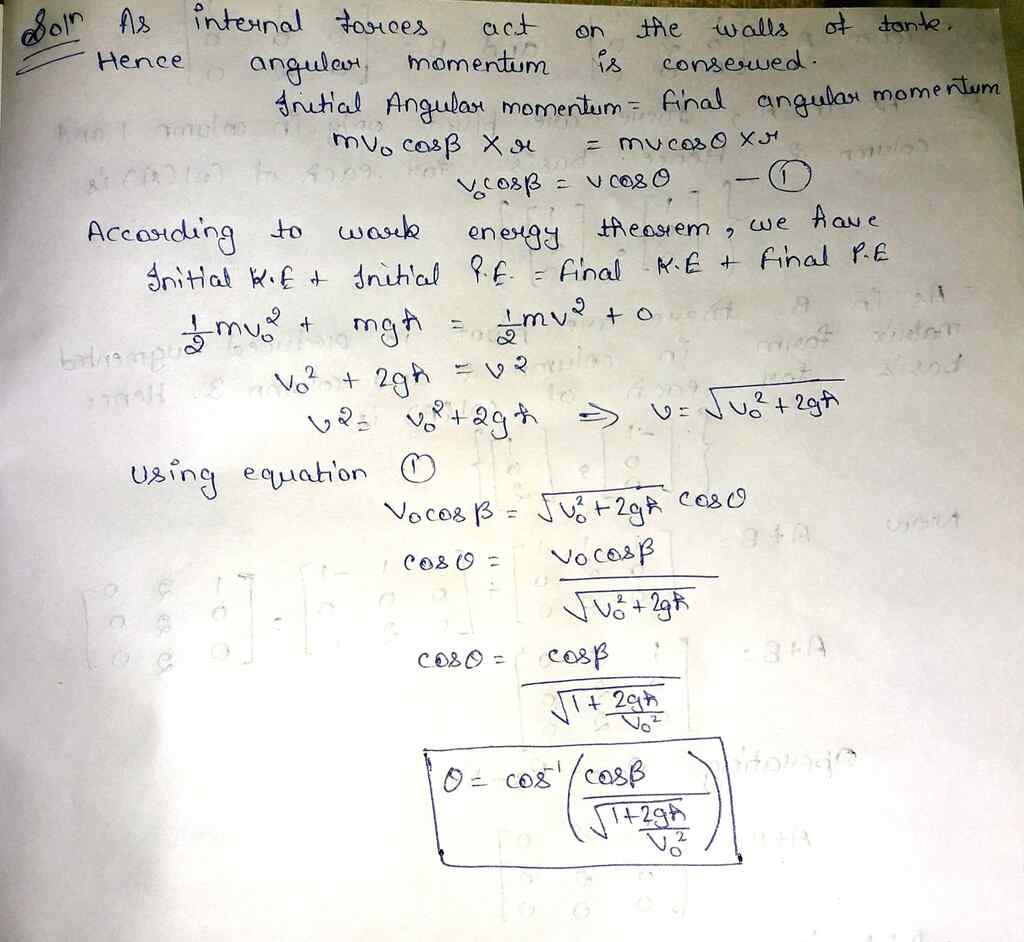 Soln As internal forces act on the walls of tank.
Hence angular momentum is conserved.
Initial Angular momentum = final angular momentum
mv₀ cosβ × r = mv cosθ × r
v₀cosβ = v cosθ — ①
According to work energy theorem, we have
Initial K.E + Initial P.E. = final K.E + final P.E
1/2 mv₀² + mgh = 1/2 mv² + 0
v₀² + 2gh = v²
v² = v₀² + 2gh ⇒ v = √(v₀² + 2gh)
using equation ①
v₀cosβ = √(v₀² + 2gh) cosθ
cosθ = v₀cosβ / √(v₀² + 2gh)
cosθ = cosβ / √(1 + 2gh/v₀²)
θ = cos⁻¹ (cosβ / √(1 + 2gh/v₀²))